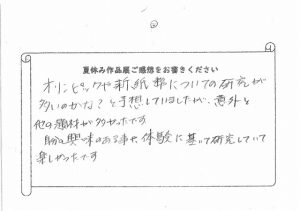 夏休み作品展ご感想をお書きください
オリンピックや新紙幣についての研究が
多いのかな？と予想していましたが、意外と
他の題材が多かったです
自分の興味のある事や、体験に基いて研究していて
楽しかったです